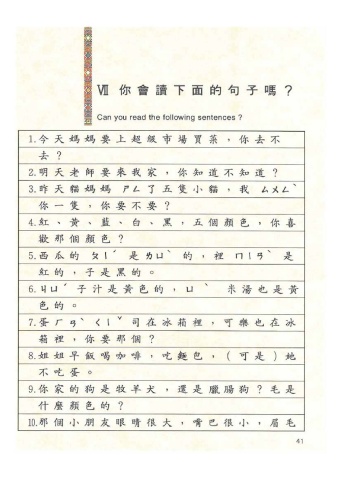 Ⅶ 你會讀下面的句子嗎？
Can you read the following sentences？
1.今天媽媽要上超級市場買菜，你去不
去？
2.明天老師要來我家，你知道不知道？
3.昨天貓媽媽ㄕㄥ了五隻小貓，我ㄙㄨㄥˋ
你一隻，你要不要？
4.紅、黃、藍、白、黑，五個顏色，你喜
歡那個顏色？
5.西瓜的ㄆㄧˊ是ㄌㄩˋ的，裡ㄇㄧㄢˋ是
紅的，子是黑的。
6.ㄐㄩˊ子汁是黃色的，ㄩˋ米湯也是黃
色的。
7.蛋ㄏㄢˋㄑㄧˇ司在冰箱裡，可樂也在冰
箱裡，你要那個？
8.姐姐早飯喝咖啡，吃麵包，(可是)她
不吃蛋。
9.你家的狗是牧羊犬，還是臘腸狗？毛是
什麼顏色的？
10.那個小朋友眼睛很大，嘴巴很小，眉毛
41